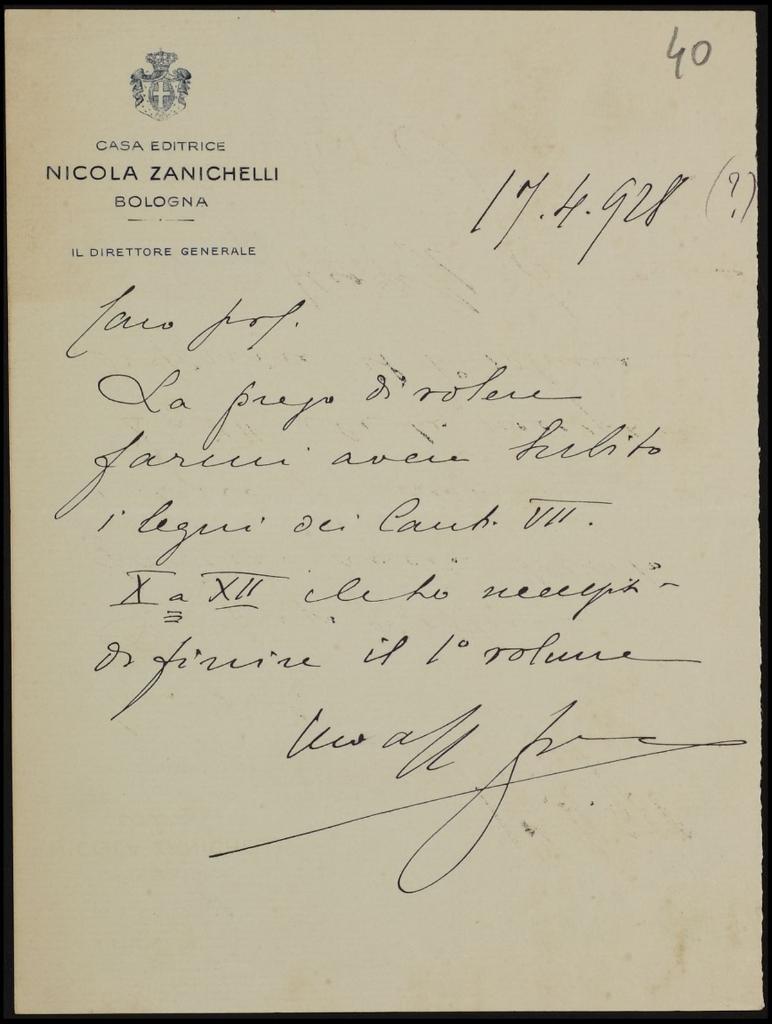 40
CASA EDITRICE
NICOLA ZANICHELLI
BOLOGNA
IL DIRETTORE GENERALE
17.4.928 (?)
Caro prof.
La prego di volere
farmi avere subito
i legni dei Canti VII.
X a XII che ho
di finire il 1° volume
Suo aff